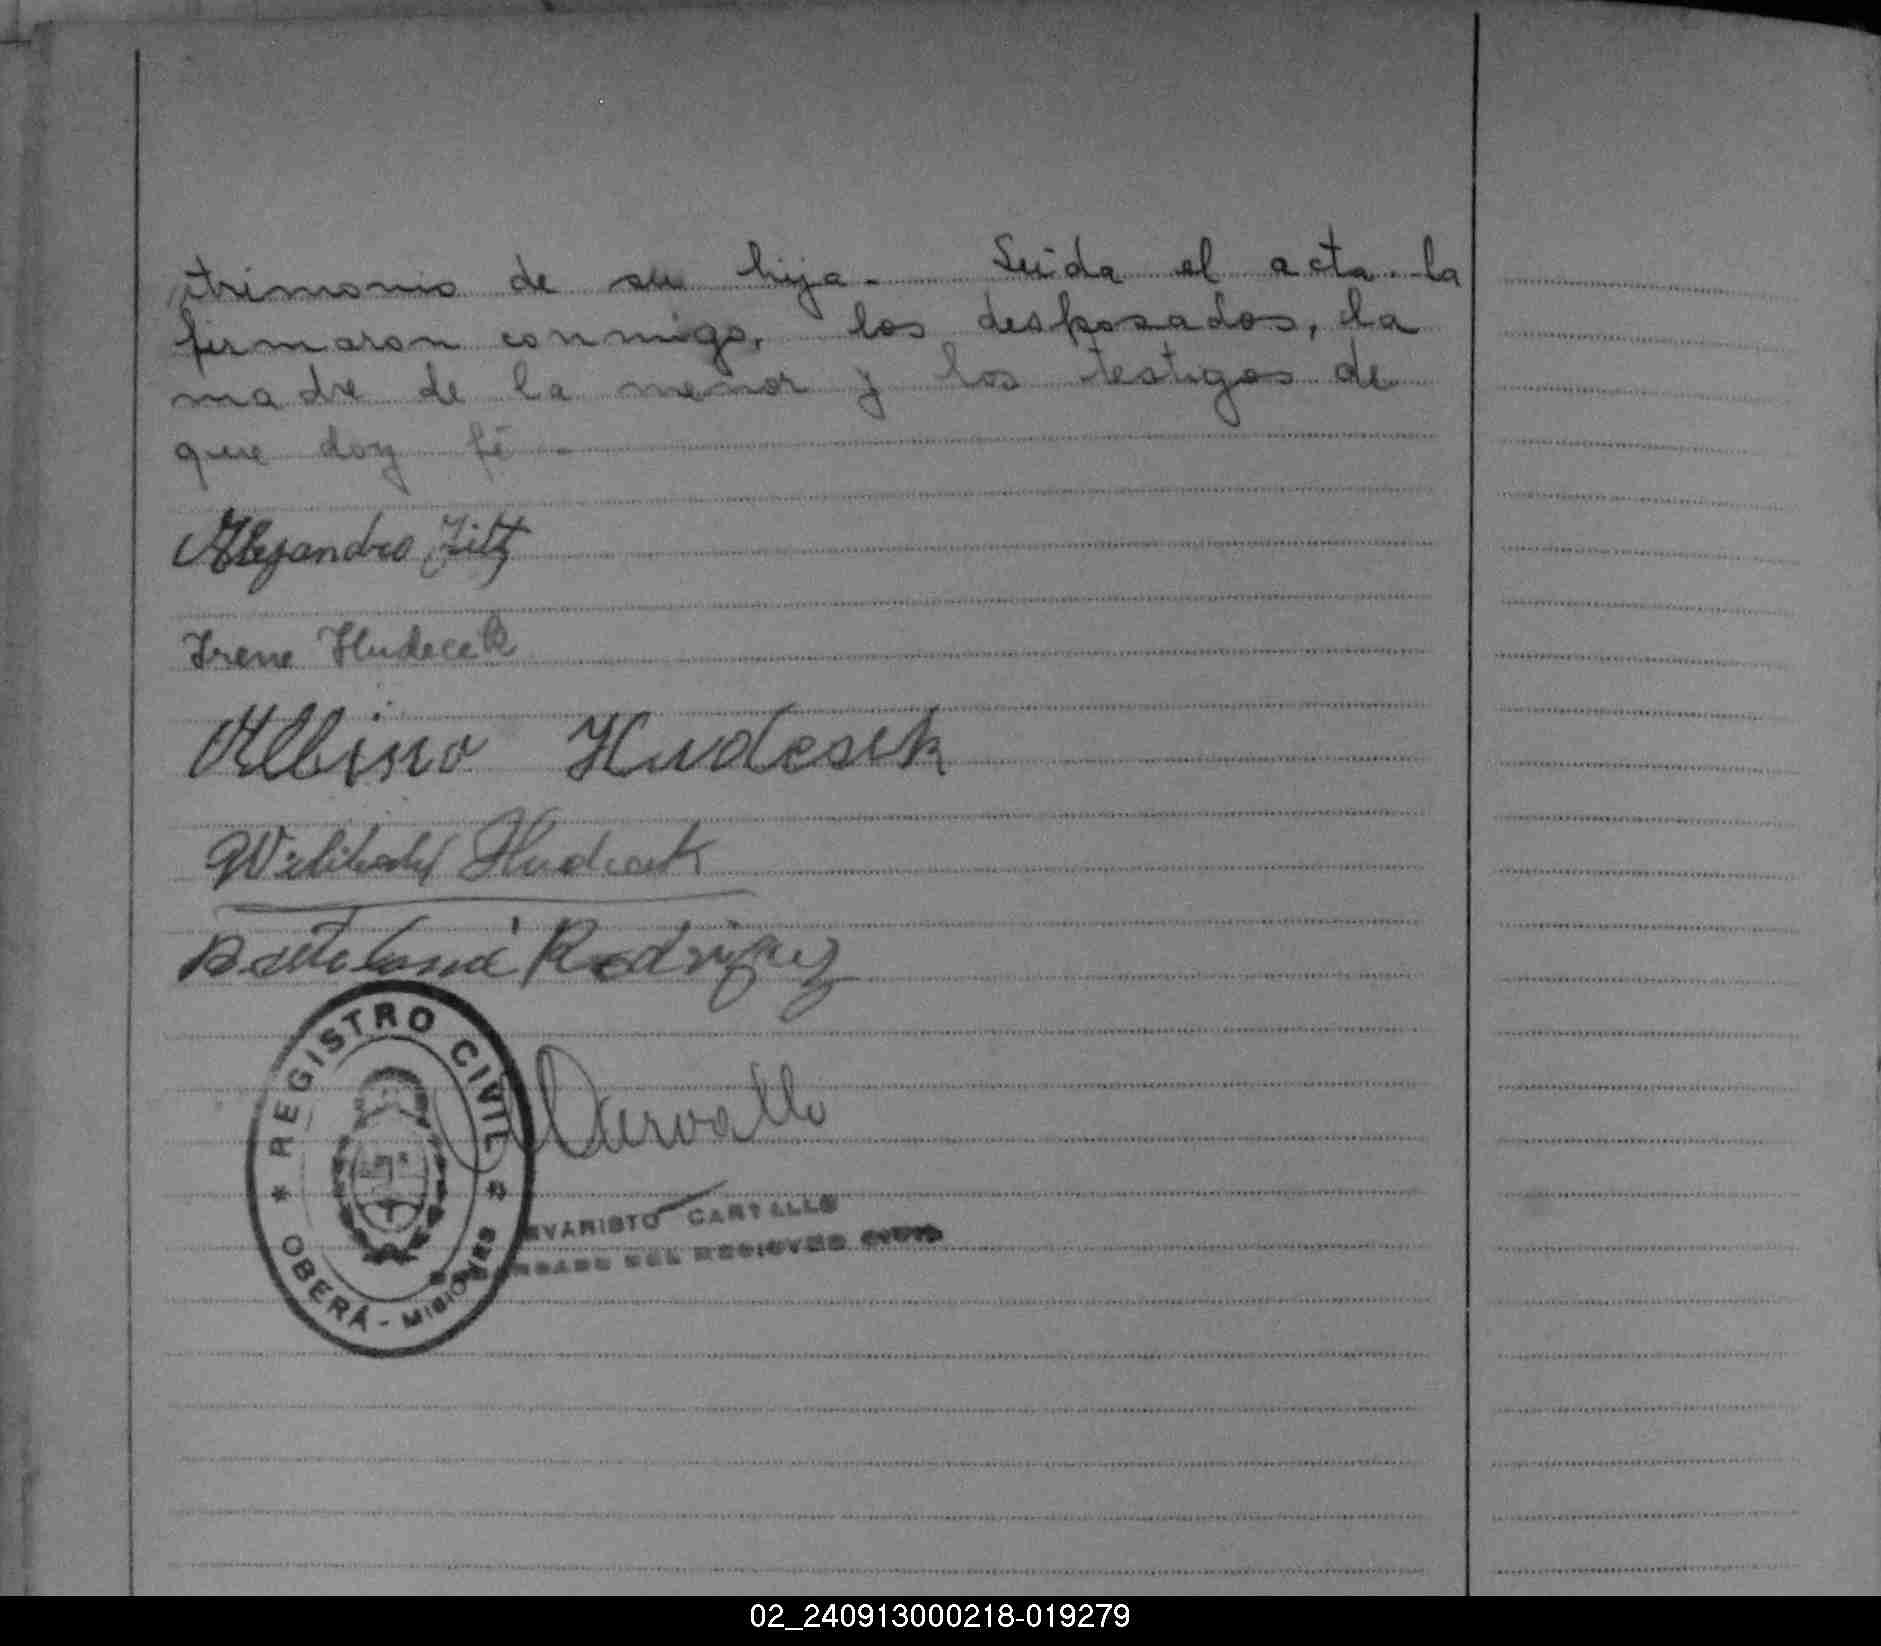 trimonio de su hija. Leida el acta la
firmaron conmigo, los desposados, la
madre de la menor y los testigos de
que doy fé.
Alejandro
Irene Hudecek
Albino Hudesek
Hudecek
Bartolomé Rodriguez
REGISTRO CIVIL
OBERÁ - MISIONES
Carvallo
EVARISTO
DEL REGISTRO CIVIL
02_240913000218-019279